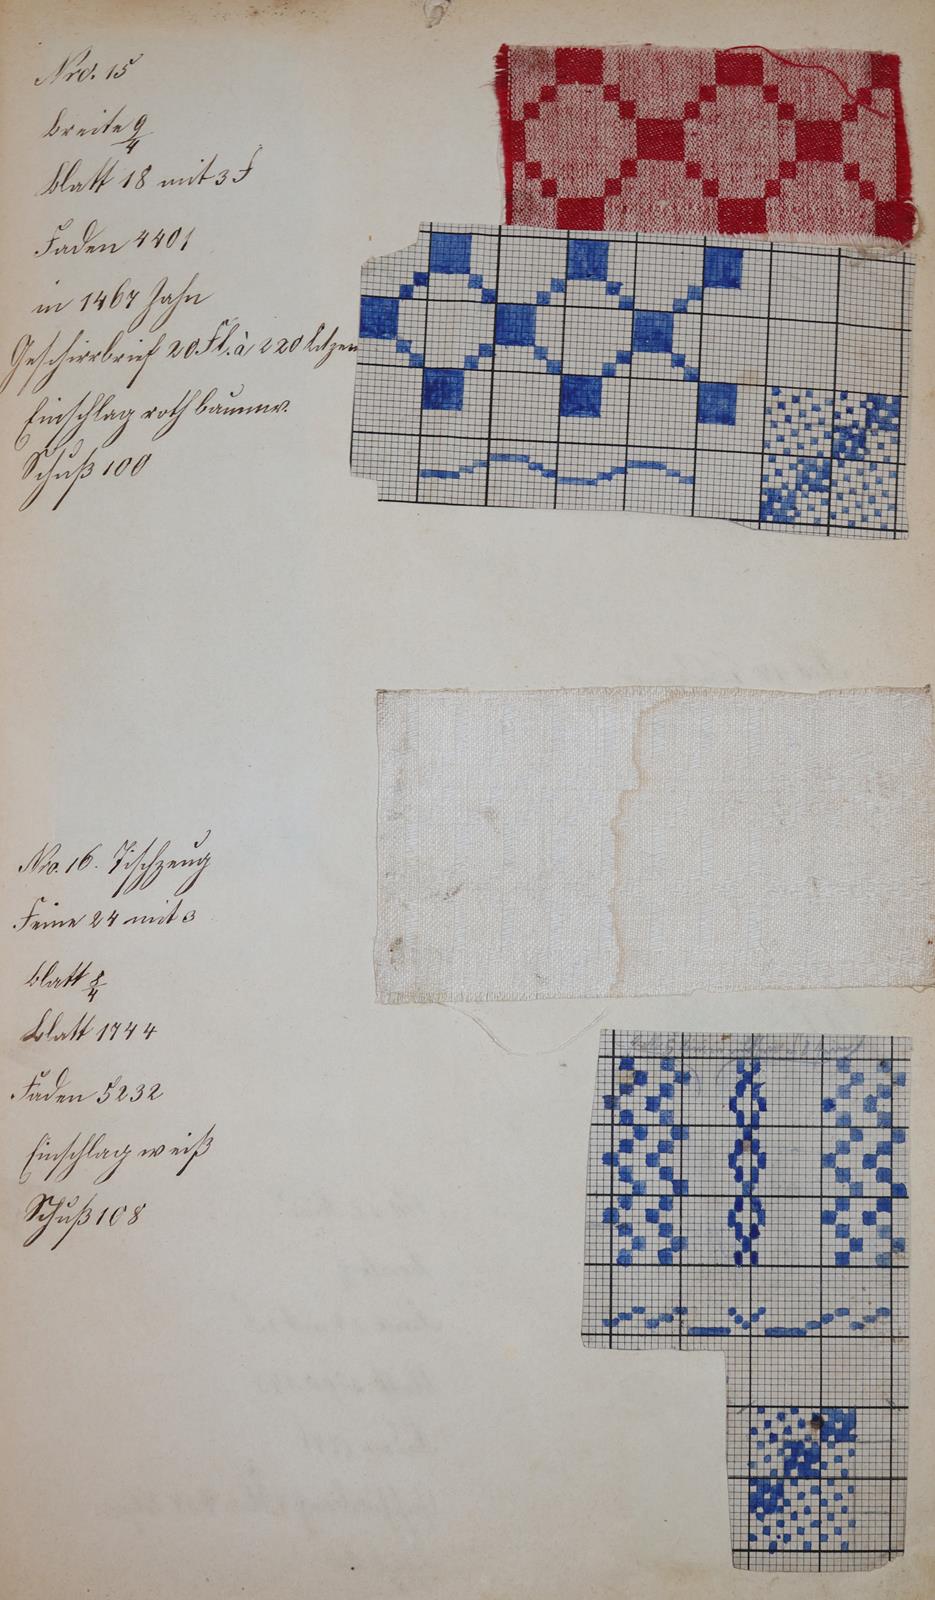 Nro. 15
breite 9/4
blatt 18 mit 3 F
Faden 4401
in 1467 Zahn
Geschirrbrief 20 Fl. à 220 Litzen
Einschlag roth baumw.
Schuß 100
Nro. 16. Tischzeug
Feine 24 mit 3
blatt 8/4
blatt 1744
Faden 5232
Einschlag weiß
Schuß 108